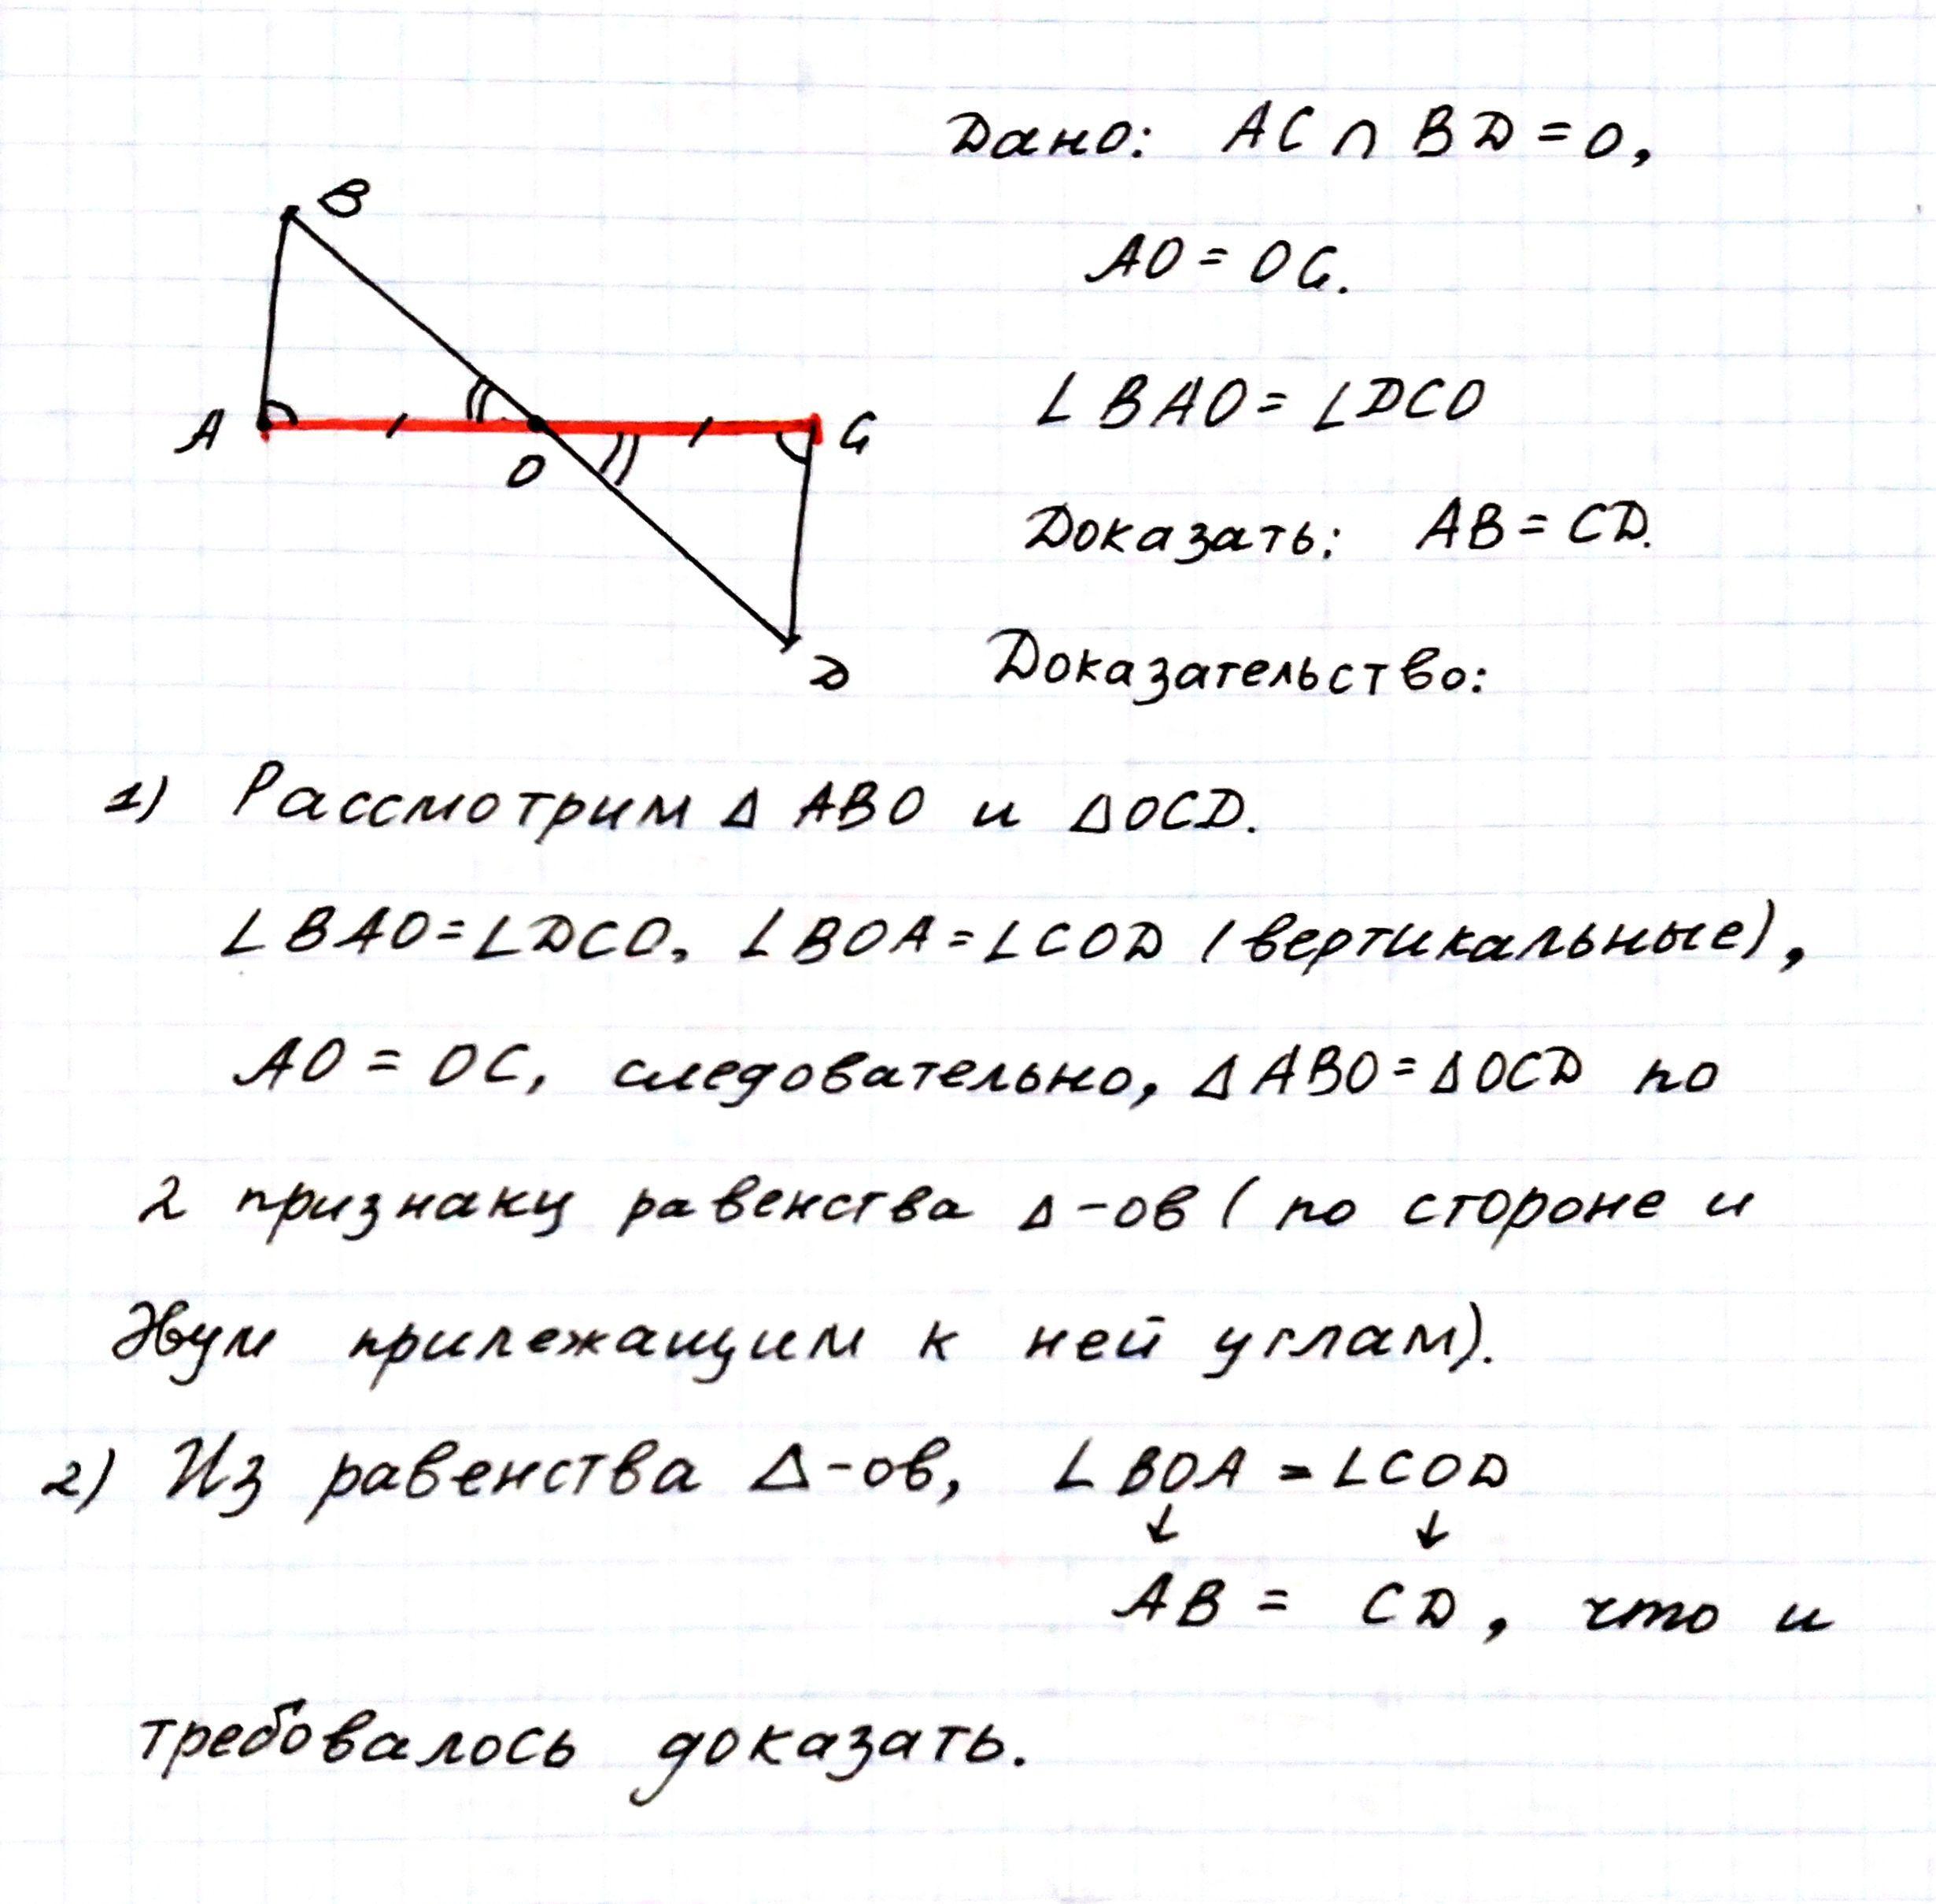 Дано: AC ∩ BD = O,
B
AO = OC.
∠BAO = ∠DCO
A
C
O
Доказать: AB = CD.
D
Доказательство:
1) Рассмотрим Δ ABO и ΔOCD.
∠BAO = ∠DCO, ∠BOA = ∠COD (вертикальные),
AO = OC, следовательно, ΔABO = ΔOCD по
2 признаку равенства Δ-ов (по стороне и
двум прилежащим к ней углам).
2) Из равенства Δ-ов, ∠BOA = ∠COD
↓ ↓
AB = CD, что и
требовалось доказать.